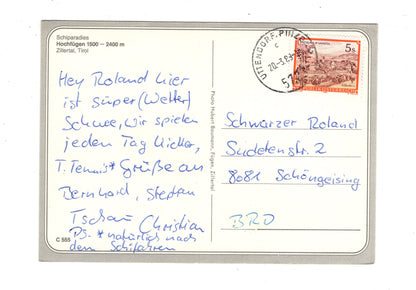 Schiparadies
Hochfügen 1500 – 2400 m
Zillertal, Tirol
Hey Roland hier
ist süper (Wetter)
Schnee, wir spielen
jeden Tag Kicker,
T. Tennis* Grüße an
Bernhard, Stephan
Tschau Christian
PS. * natürlich nach
dem Schifahren
C 555
Photo Hubert Baumann, Fügen, Zillertal
UTTENDORF, PINZGAU
5 S
REPUBLIK ÖSTERREICH
Schwarzer Roland
Sudetenstr. 2
8081 Schöngeising
BRD